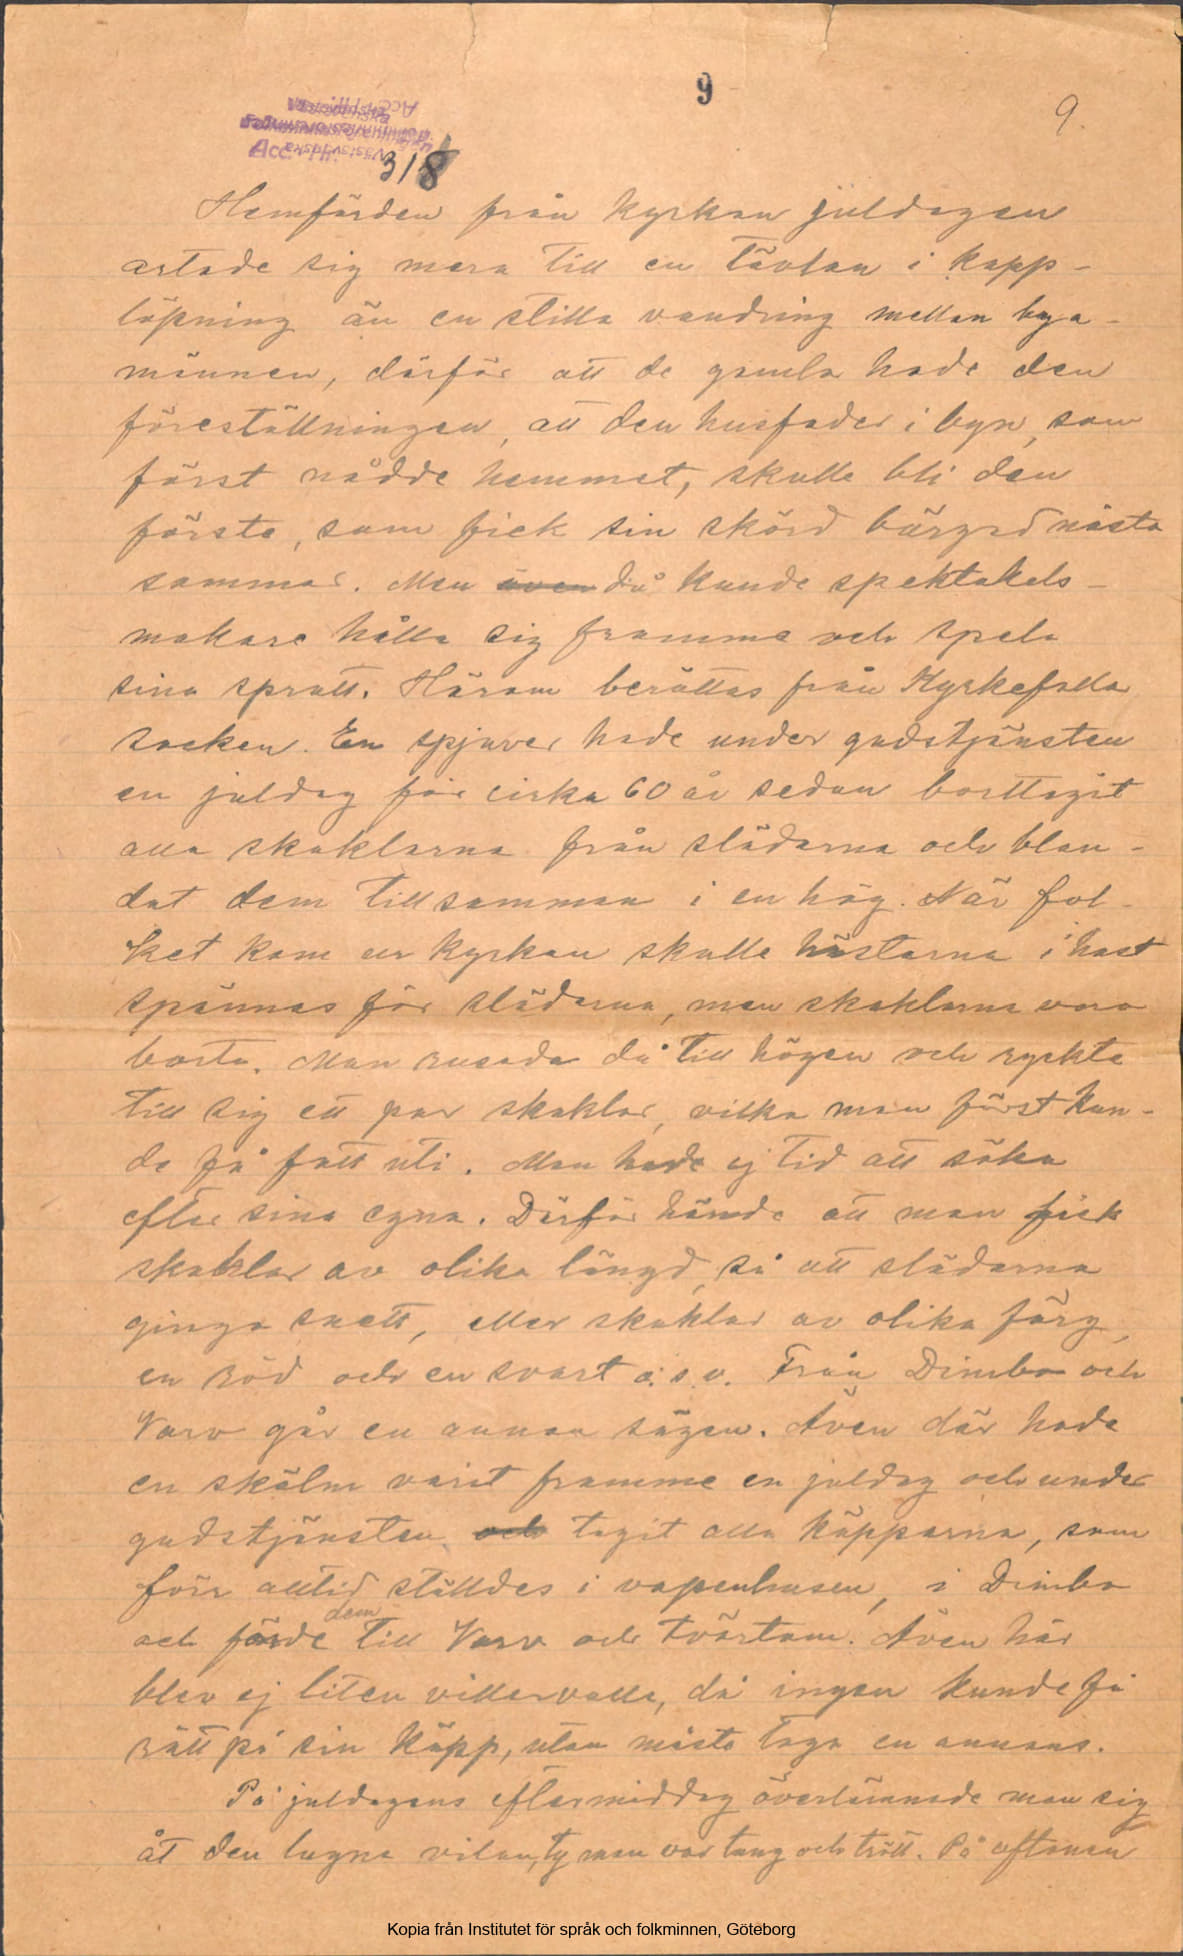 9
9.
Acc. nr. 318
Hemfärden från kyrkan juldagen
artade sig mera till en tävlan i kapp-
löpning än en stilla vandring mellan bya-
männen, därför att de gamla hade den
föreställningen, att den husfader i byn, som
först nådde hemmet, skulle bli den
första, som fick sin skörd bärgad nästa
sommar. Men även då kunde spektakels-
makare hålla sig framme och spela
sina spratt. Härom berättas från Kyrkefalla
socken. En spjuver hade under gudstjänsten
en juldag för cirka 60 år sedan borttagit
alla skaklarna från slädarna och blan-
dat dem tillsamman i en hög. När fol-
ket kom ur kyrkan skulle hästarna i hast
spännas för slädarna, men skaklarna voro
borta. Man rusade då till högen och ryckte
till sig ett par skaklar, vilka man först kun-
de få fatt uti. Man hade ej tid att söka
efter sina egna. Därför hände att man fick
skaklar av olika längd, så att slädarna
gingo snett, eller skaklar av olika färg,
en röd och en svart o.s.v. Från Dimbo och
Varv går en annan sägen. Även där hade
en skälm varit framme en juldag och under
gudstjänsten och tagit alla käpparna, som
förr alltid ställdes i vapenhusen, i Dimbo
dem
och förde till Varv och tvärtom. Även här
blev ej liten villervalla, då ingen kunde få
rätt på sin käpp, utan måste taga en annans.
På juldagens eftermiddag överlämnade man sig
åt den lugna vilan, ty man var tung och trött. På aftonen
Kopia från Institutet för språk och folkminnen, Göteborg